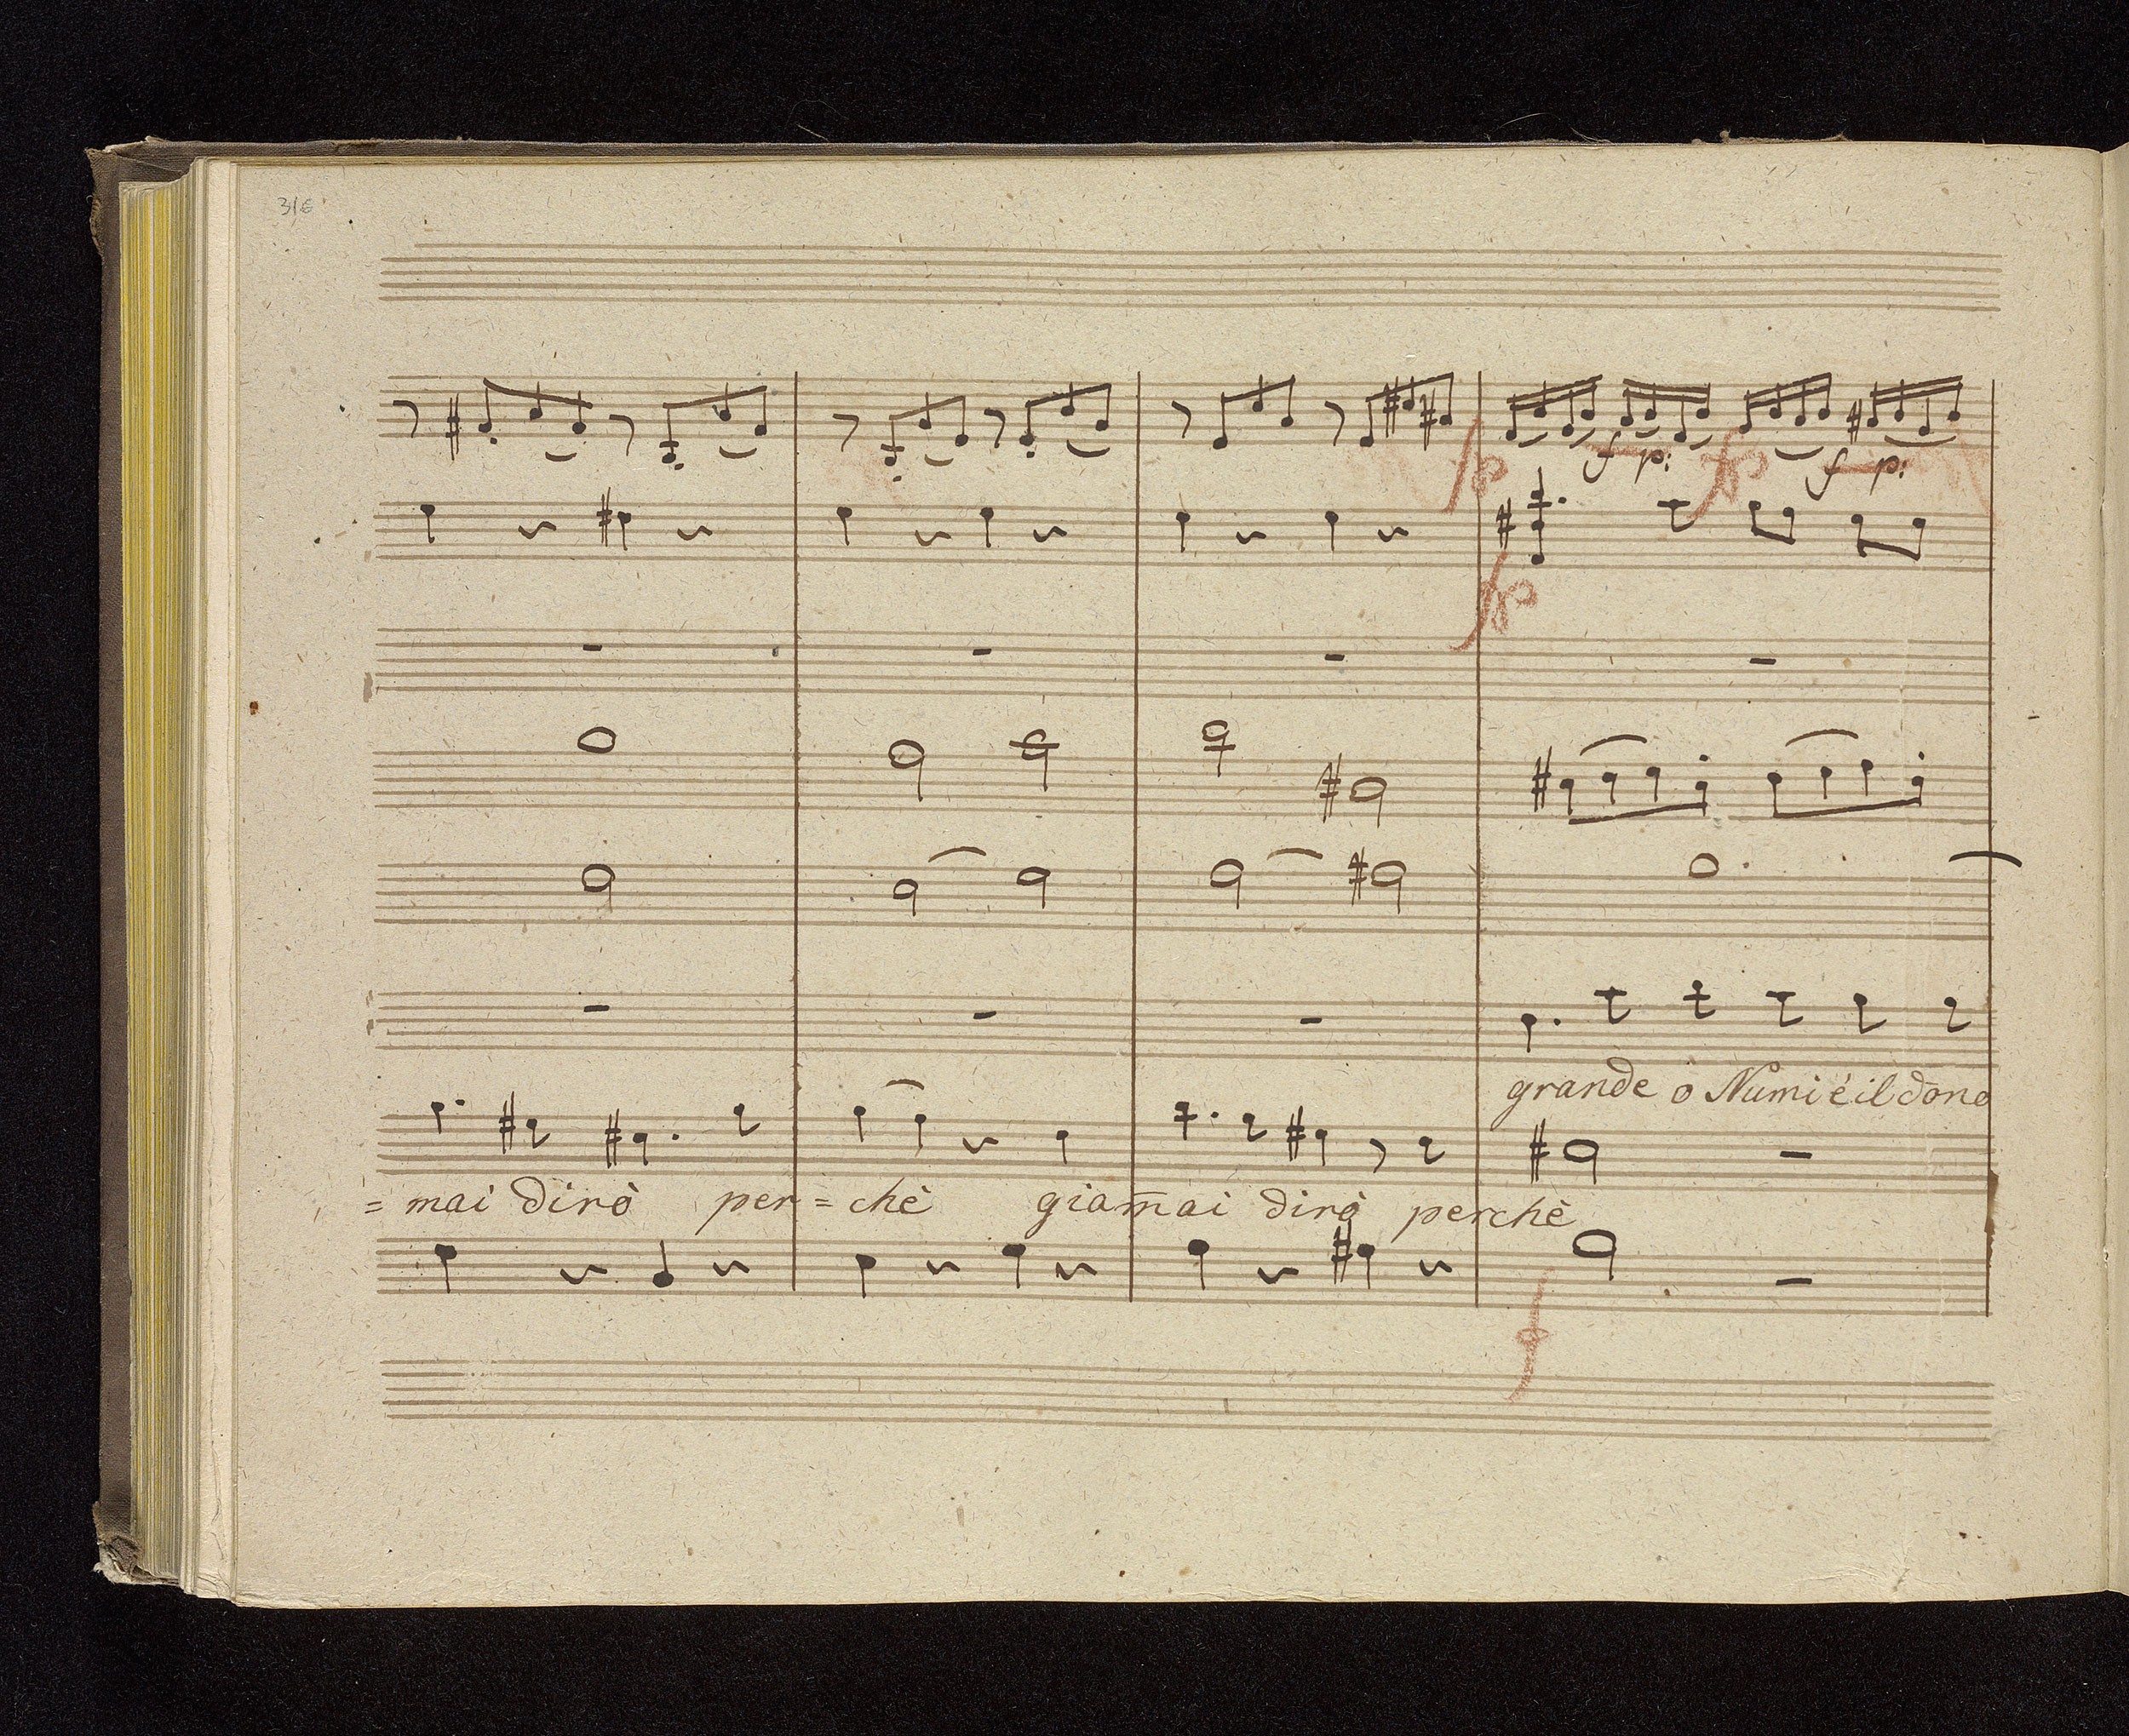 316
fp fp
f p: f p:
fp
grande o Numi é il dono
= mai dirò per = chè giam̅ai dirò perchè
f